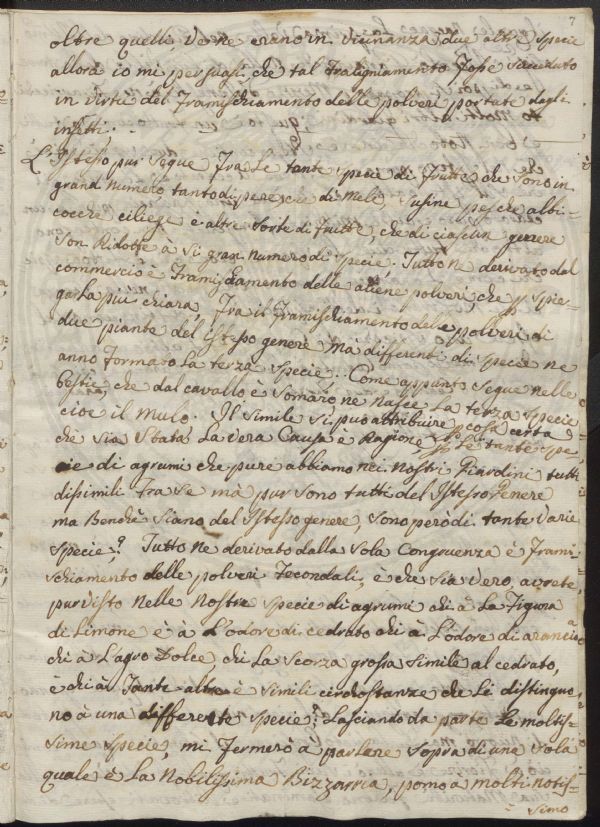 7
oltre quelli, ve ne erano in vicinanza due altre specie
allora io mi persuasi, che tal Traligniamento fosse succeduto
in virtù del Framischiamento delle polveri portate dagli
insetti.
L'Istesso pur segue fra Le tante specie di frutte, che sono in
gran numero, tanto di pere, che di Mele, Susine pesche albi-
cocche ciliege è altre sorte di frutte, che di ciascun genere
son Ridotte à sì gran numero di specie. Tutto Ne derivato dal
commercio è Framischiamento delle aliene polveri, che p. spie-
garla più chiara, Fra il Framischiamento delle polveri di
due piante del istesso genere mà differenti di specie ne
anno formato La terza specie. Come appunto segue nelle
bestie, che dal cavallo è somaro ne Nasce La terza specie
cioè il Mulo. Il simile si può attribuire p cosa certa
che sia stata La vera Causa è Ragione, Le tante spe-
cie di agrumi che pure abbiamo nei Nostri Giardini tutti
dissimili fra se mà pur sono tutti del Istesso Genere
ma Benchè siano del Istesso genere, sono però di tante Varie
specie? Tutto Ne derivato dalla sola Congruenza è Frami-
schiamento delle polveri fecondali, è che sia vero, avrete
pur visto Nelle Nostre specie di agrumi chi à La Figura
di Limone è à L'odore di cedrato chi à L'odore di arancio
chi à L'agro Dolce, chi La scorza grossa simile al cedrato,
è chi à Tante altre è simili circhostanze che Le distinguo
no à una differente specie? Lasciando da parte Le moltis-
sime specie, mi fermerò à parlare sopra di una sola
quale è La Nobilissima Bizzarria, pomo à molti notis-
simo